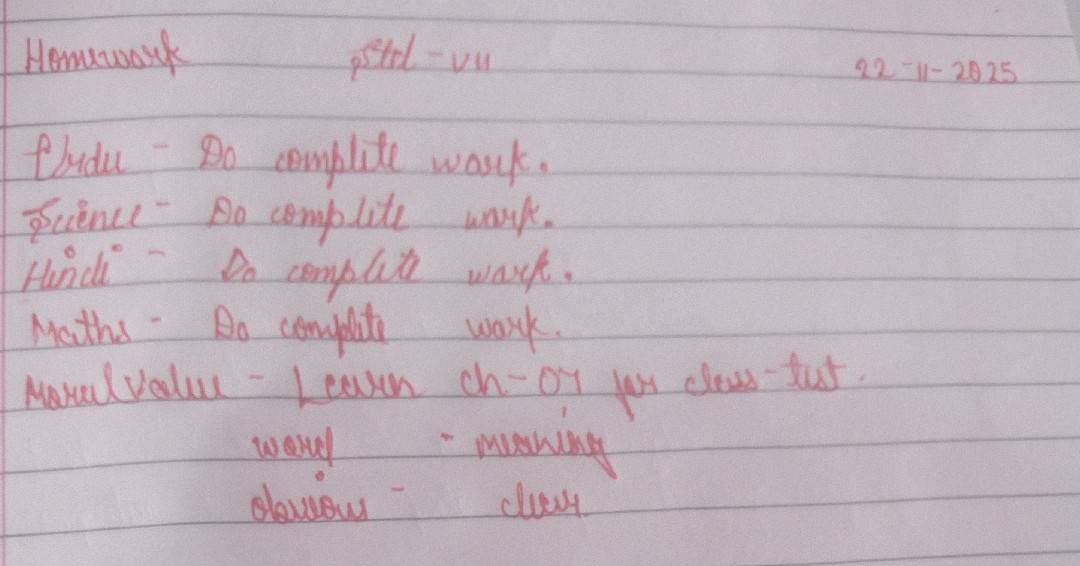 Homework Std - VII 22-11-2025
Urdu - Do complite work.
Science - Do complite work.
Hindi - Do complite work.
Maths - Do complite work.
Moral Value - Learn ch-07 for class-test.
word - meaning
obvious - clear